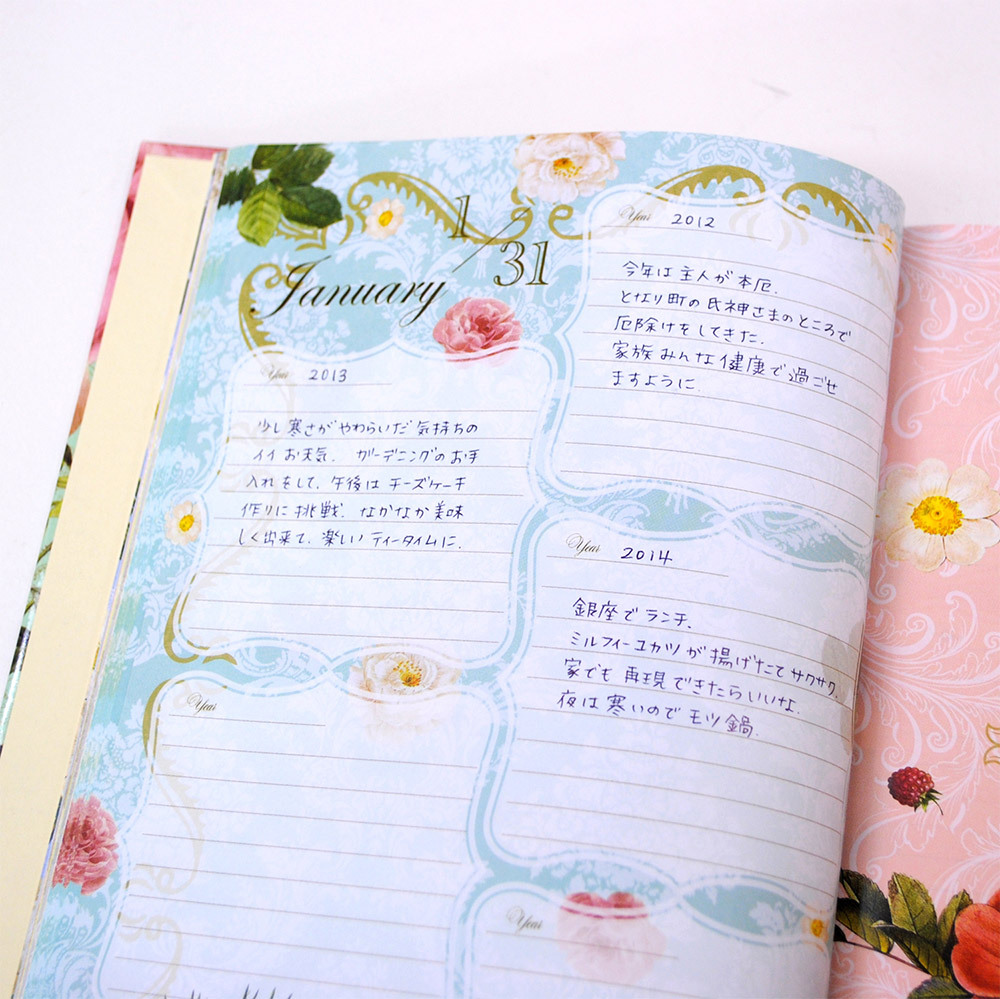 1/31
January
Year 2012
今年は主人が本厄.
となり町の氏神さまのところで
厄除けをしてきた.
家族みんな健康で過ごせ
ますように.
Year 2013
少し寒さがやわらいだ気持ちの
イイお天気. ガーデニングのお手
入れをして、午後はチーズケーキ
作りに挑戦. なかなか美味
しく出来て、楽しいティータイムに.
Year 2014
銀座でランチ.
ミルフィーユカツが揚げたてサクサク.
家でも再現できたらいいな.
夜は寒いのでモツ鍋.
Year
Year